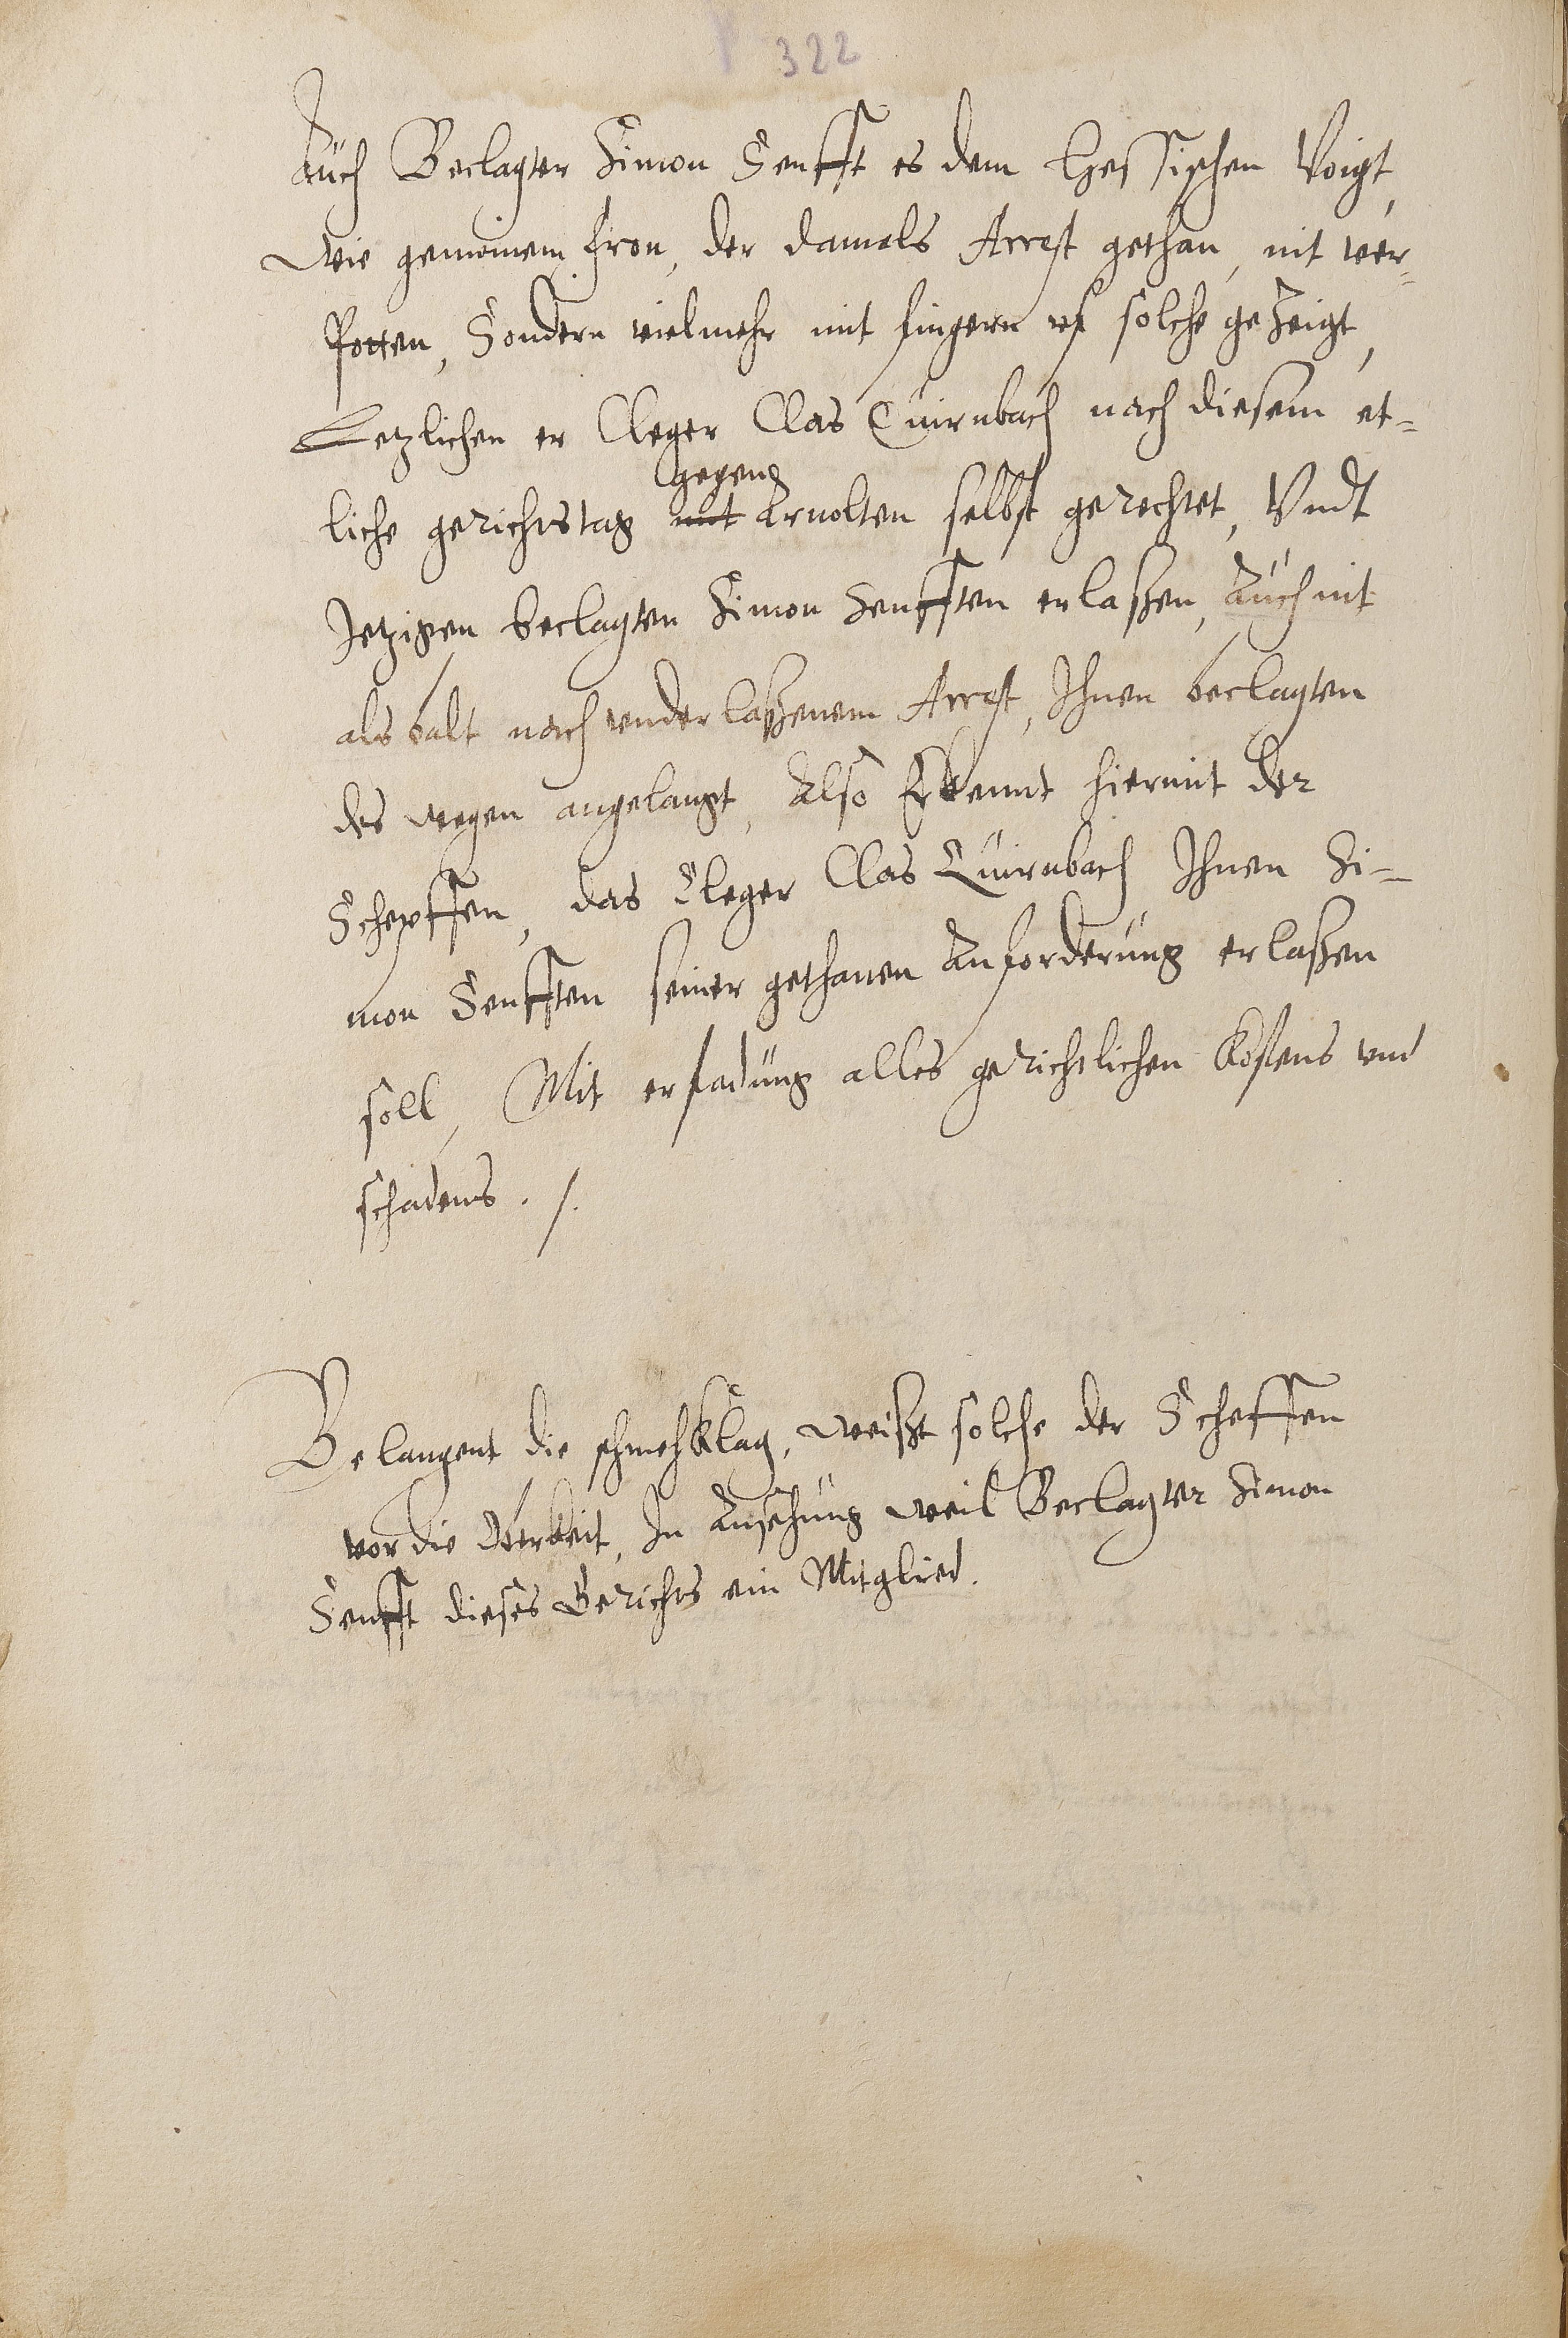 322
Auch Beclagter Simon Senfft es dem Hessischen Voigt,
wie gemeinem fron, der damals Arrest gethan, nit ver¬
Potten, Sondern vielmehr mit fingern vf solche gezeigt,
Letzlichen er Cleger Clas Quirnbach nach diesem et¬
gegen
liche gerichtstag mit Arnolten selbst gerechtet, Vndt
Jetzigen beclagten Simon Senfften erlaßen, Auch nit
als balt nach vnderlaßenem Arrest, Ihnen beclagten
des wegen angelangt, Also Erkennt hiermit der
Schepffen, das Cleger Clas Quirnbach Ihnen Si¬
mon Senfften seiner gethanen Anforderung erlaßen
soll, Mit erstadung alles gerichtlichen Kostens vnd
schadens. /.
Belangent die schmehklag, weißt solche der Scheffen
vor die Oberkeit, In Ansehung weil Beclagter Simon
Senfft dieses Gerichts ein Mitglied.